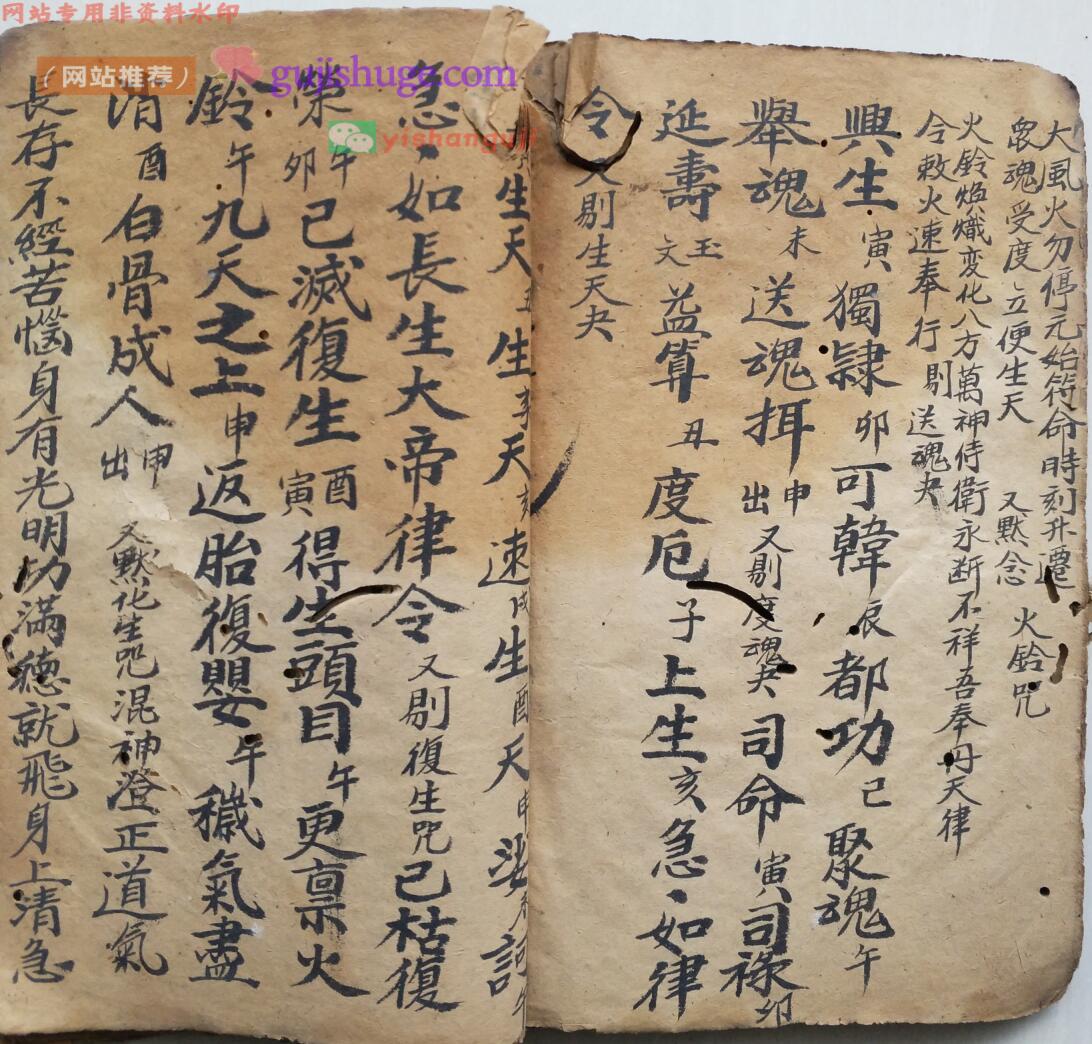 网站专用非资料水印
（网站推荐）
gujishuge.com
yishanguji
大風火勿停元始符命時刻升遷
眾魂受度立便生天 又默念 火鈴咒
火鈴焰熾变化八方萬神侍衛永断不祥吾奉丹天律
令敕火速奉行 剔送魂夬
興生寅獨隸卯可韓辰都功己聚魂午
舉魂未送魂挕申出又剔度魂夬司命寅司禄卯
延壽玉文益算丑度厄子上生亥急如律
令又剔生天夬
生天丑生天亥速戌生酉天申娑訶午
急如長生大帝律令又剔復生咒已枯復
荣午卯已滅復生酉寅得生頭目午更禀火
鈴午九天之上申返胎復嬰午穢氣盡
消酉白骨成人申出又默化生咒混神澄正道氣
長存不經苦惱身有光明功滿德就飛身上清急